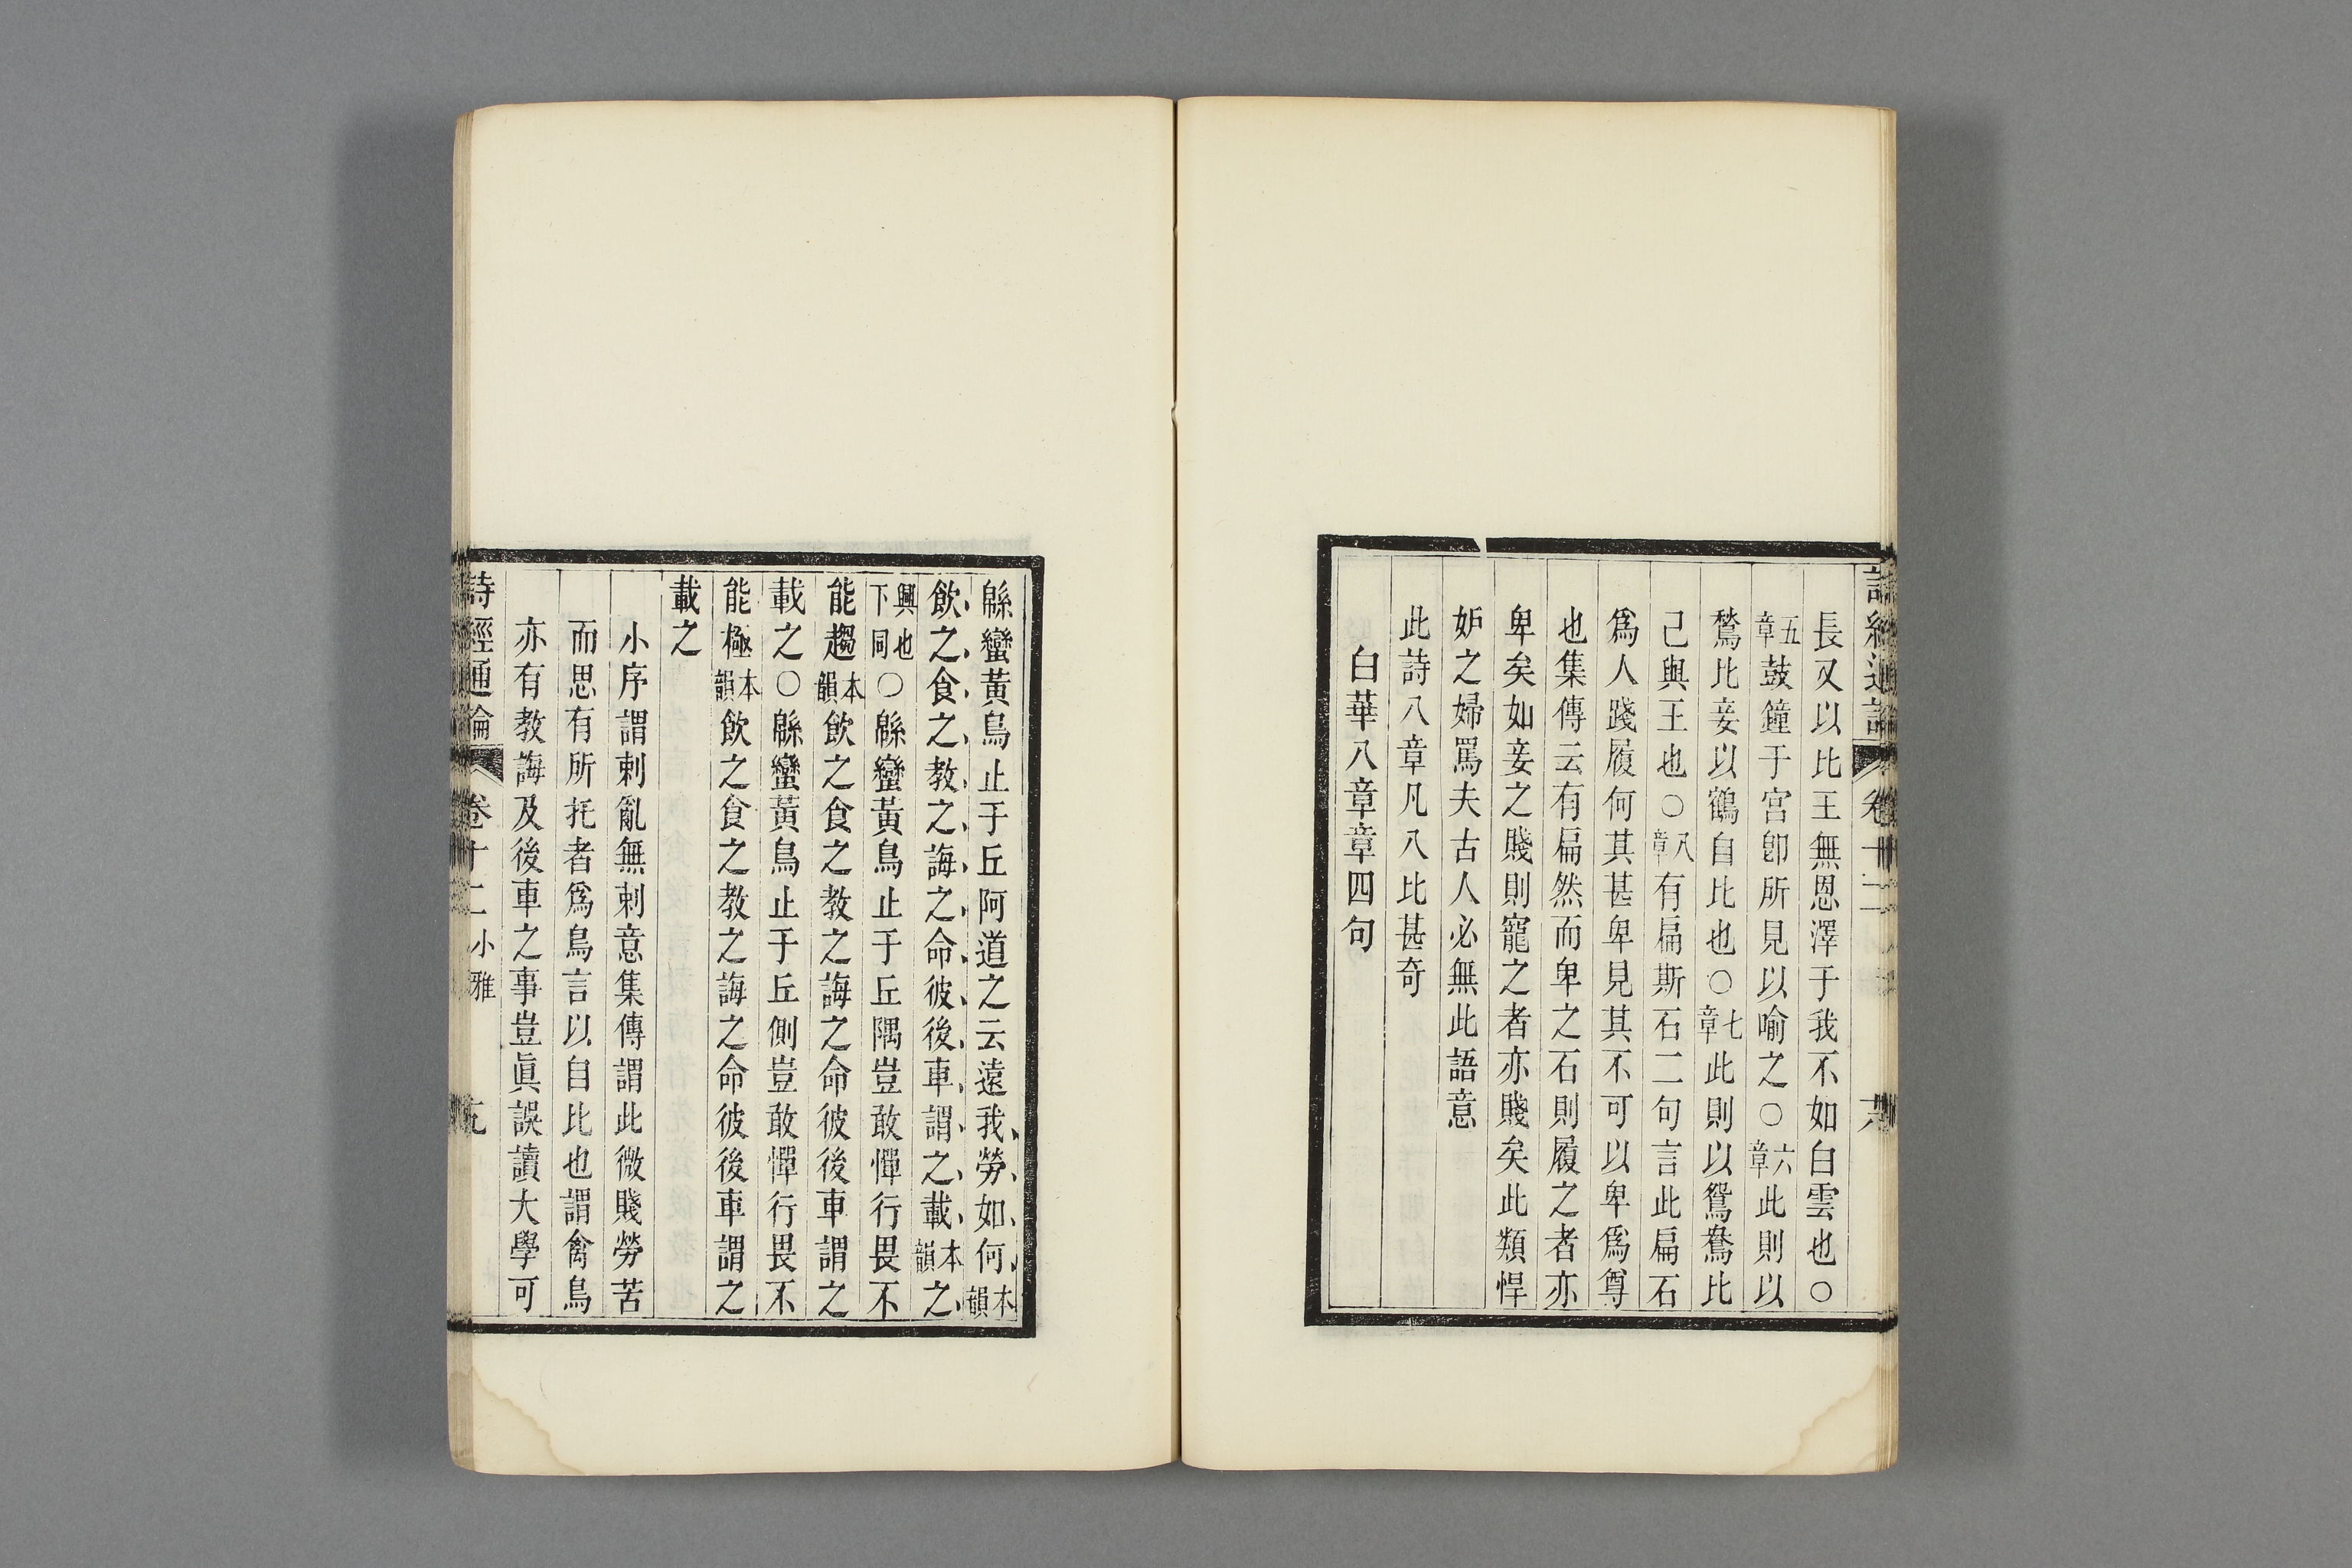 長又以比王無恩澤于我不如白雲也○
五章鼓鐘于宮卽所見以喻之○六章此則以
鶖比妾以鶴自比也○七章此則以鴛鴦比
己與王也○八章有扁斯石二句言此扁石
爲人踐履何其甚卑見其不可以卑爲尊
也集傳云有扁然而卑之石則履之者亦
卑矣如妾之賤則寵之者亦賤矣此類悍
妒之婦罵夫古人必無此語意
此詩八章凡八比甚奇
白華八章章四句
緜蠻黃鳥止于丘阿道之云遠我勞如何本韻
飲之食之教之誨之命彼後車謂之載本韻之
興也下同○緜蠻黃鳥止于丘隅豈敢憚行畏不
能趨本韻飲之食之教之誨之命彼後車謂之
載之○緜蠻黃鳥止于丘側豈敢憚行畏不
能極本韻飲之食之教之誨之命彼後車謂之
載之
小序謂刺亂無刺意集傳謂此微賤勞苦
而思有所托者爲鳥言以自比也謂禽鳥
亦有教誨及後車之事豈眞誤讀大學可
詩經通論 卷十二小雅